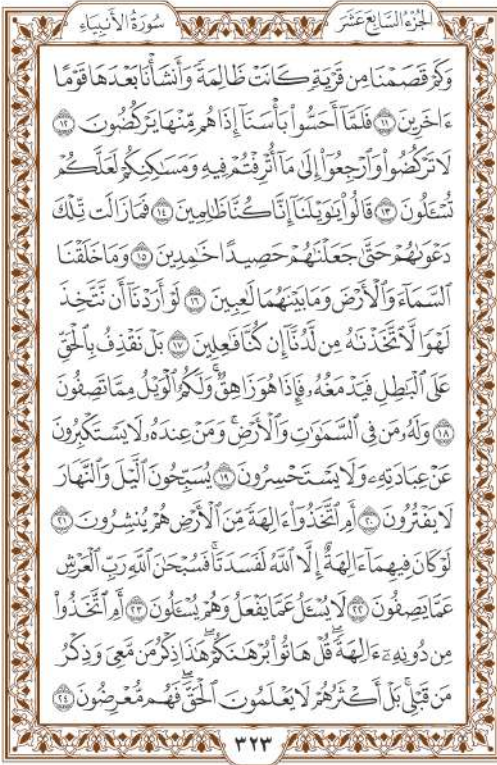 الجُزْءُ السَّابِعَ عَشَرَ
سُورَةُ الأَنبِيَاءِ
وَكَمْ قَصَمْنَا مِن قَرْيَةٍ كَانَتْ ظَالِمَةً وَأَنشَأْنَا بَعْدَهَا قَوْمًا
ءَاخَرِينَ ١١ فَلَمَّآ أَحَسُّوا۟ بَأْسَنَآ إِذَا هُم مِّنْهَا يَرْكُضُونَ ١٢
لَا تَرْكُضُوا۟ وَٱرْجِعُوٓا۟ إِلَىٰ مَآ أُتْرِفْتُمْ فِيهِ وَمَسَـٰكِنِكُمْ لَعَلَّكُمْ
تُسْـَٔلُونَ ١٣ قَالُوا۟ يَـٰوَيْلَنَآ إِنَّا كُنَّا ظَـٰلِمِينَ ١٤ فَمَا زَالَت تِّلْكَ
دَعْوَىٰهُمْ حَتَّىٰ جَعَلْنَـٰهُمْ حَصِيدًا خَـٰمِدِينَ ١٥ وَمَا خَلَقْنَا
ٱلسَّمَآءَ وَٱلْأَرْضَ وَمَا بَيْنَهُمَا لَـٰعِبِينَ ١٦ لَوْ أَرَدْنَآ أَن نَّتَّخِذَ
لَهْوًا لَّٱتَّخَذْنَـٰهُ مِن لَّدُنَّآ إِن كُنَّا فَـٰعِلِينَ ١٧ بَلْ نَقْذِفُ بِٱلْحَقِّ
عَلَى ٱلْبَـٰطِلِ فَيَدْمَغُهُۥ فَإِذَا هُوَ زَاهِقٌ ۚ وَلَكُمُ ٱلْوَيْلُ مِمَّا تَصِفُونَ
١٨ وَلَهُۥ مَن فِى ٱلسَّمَـٰوَٰتِ وَٱلْأَرْضِ ۚ وَمَنْ عِندَهُۥ لَا يَسْتَكْبِرُونَ
عَنْ عِبَادَتِهِۦ وَلَا يَسْتَحْسِرُونَ ١٩ يُسَبِّحُونَ ٱلَّيْلَ وَٱلنَّهَارَ
لَا يَفْتُرُونَ ٢٠ أَمِ ٱتَّخَذُوٓا۟ ءَالِهَةً مِّنَ ٱلْأَرْضِ هُمْ يُنشِرُونَ ٢١
لَوْ كَانَ فِيهِمَآ ءَالِهَةٌ إِلَّا ٱللَّهُ لَفَسَدَتَا ۚ فَسُبْحَـٰنَ ٱللَّهِ رَبِّ ٱلْعَرْشِ
عَمَّا يَصِفُونَ ٢٢ لَا يُسْـَٔلُ عَمَّا يَفْعَلُ وَهُمْ يُسْـَٔلُونَ ٢٣ أَمِ ٱتَّخَذُوا۟
مِن دُونِهِۦٓ ءَالِهَةً ۖ قُلْ هَاتُوا۟ بُرْهَـٰنَكُمْ ۖ هَـٰذَا ذِكْرُ مَن مَّعِىَ وَذِكْرُ
مَن قَبْلِى ۗ بَلْ أَكْثَرُهُمْ لَا يَعْلَمُونَ ٱلْحَقَّ ۖ فَهُم مُّعْرِضُونَ ٢٤
٣٢٣